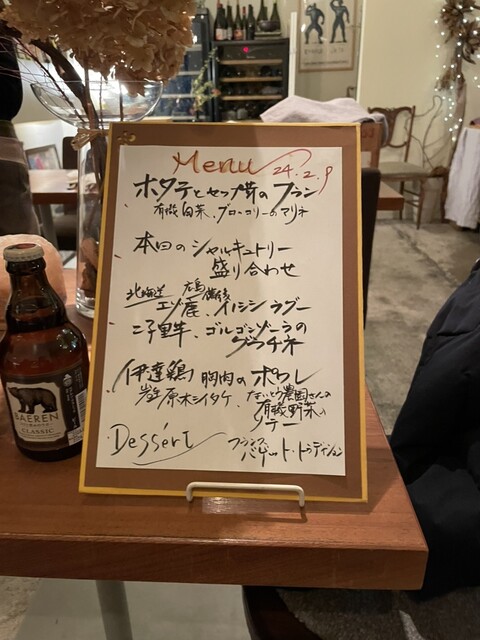 Menu 24.2.9
ホタテとセップ茸のフラン
有機白菜、ブロッコリーのマリネ
本日のシャルキュトリー
盛り合わせ
北海道 広島備後
エゾ鹿、イノシシラグー
二子里芋、ゴルゴンゾーラの
グラチネ
伊達鶏 胸肉のポワレ
岩手原木シイタケ、
農園さんの
有機野菜の
ソテー
Dessért
フランス
バゲット・トラディション
BAEREN
CLASSIC